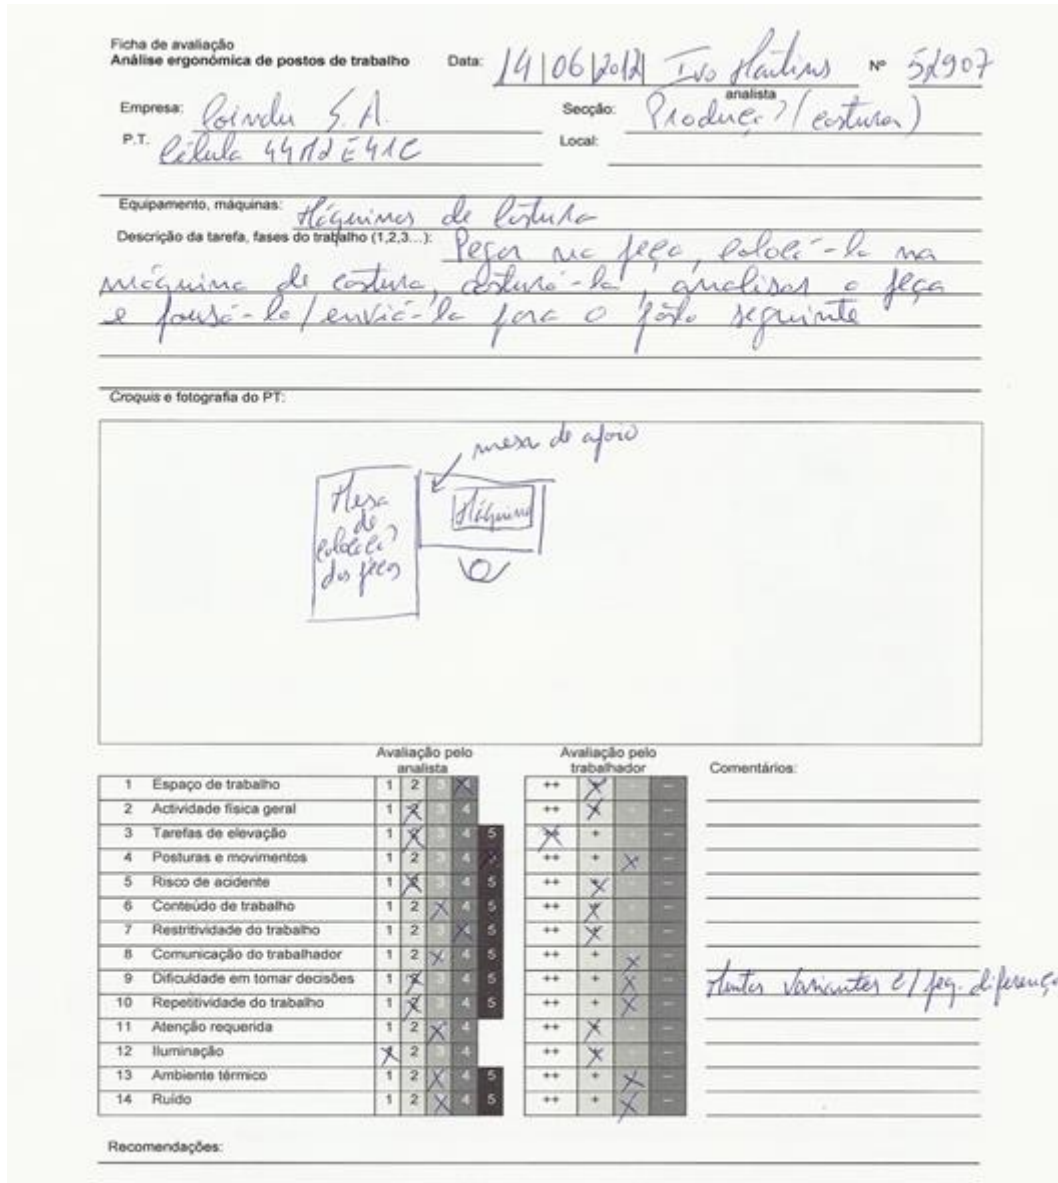 Ficha de avaliação
Análise ergonómica de postos de trabalho Data: 14/06/2012 Ivo Martins Nº 52907
analista
Empresa: Coindu S.A. Secção: Produçã? (costura)
P.T. Célula 44M2 E41C Local:
Equipamento, máquinas: Máquinas de Costura
Descrição da tarefa, fases do trabalho (1,2,3...): Pegar na peça, colocá-la na
máquina de costura, costurá-la, analisar a peça
e pousá-la/enviá-la para o posto seguinte
Croquis e fotografia do PT:
mesa de apoio
Mesa
de
dos peças
Máquina
Avaliação pelo analista Avaliação pelo trabalhador Comentários:
1 Espaço de trabalho 1 2 3 4 ++ + - --
2 Actividade física geral 1 2 3 4 ++ + - --
3 Tarefas de elevação 1 2 3 4 5 ++ + - --
4 Posturas e movimentos 1 2 3 4 5 ++ + - --
5 Risco de acidente 1 2 3 4 5 ++ + - --
6 Conteúdo de trabalho 1 2 3 4 5 ++ + - --
7 Restritividade do trabalho 1 2 3 4 5 ++ + - --
8 Comunicação do trabalhador 1 2 3 4 5 ++ + - --
9 Dificuldade em tomar decisões 1 2 3 4 5 ++ + - -- Muitas variantes c/ peq. diferenças
10 Repetitividade do trabalho 1 2 3 4 5 ++ + - --
11 Atenção requerida 1 2 3 4 ++ + - --
12 Iluminação 1 2 3 4 ++ + - --
13 Ambiente térmico 1 2 3 4 5 ++ + - --
14 Ruído 1 2 3 4 5 ++ + - --
Recomendações: